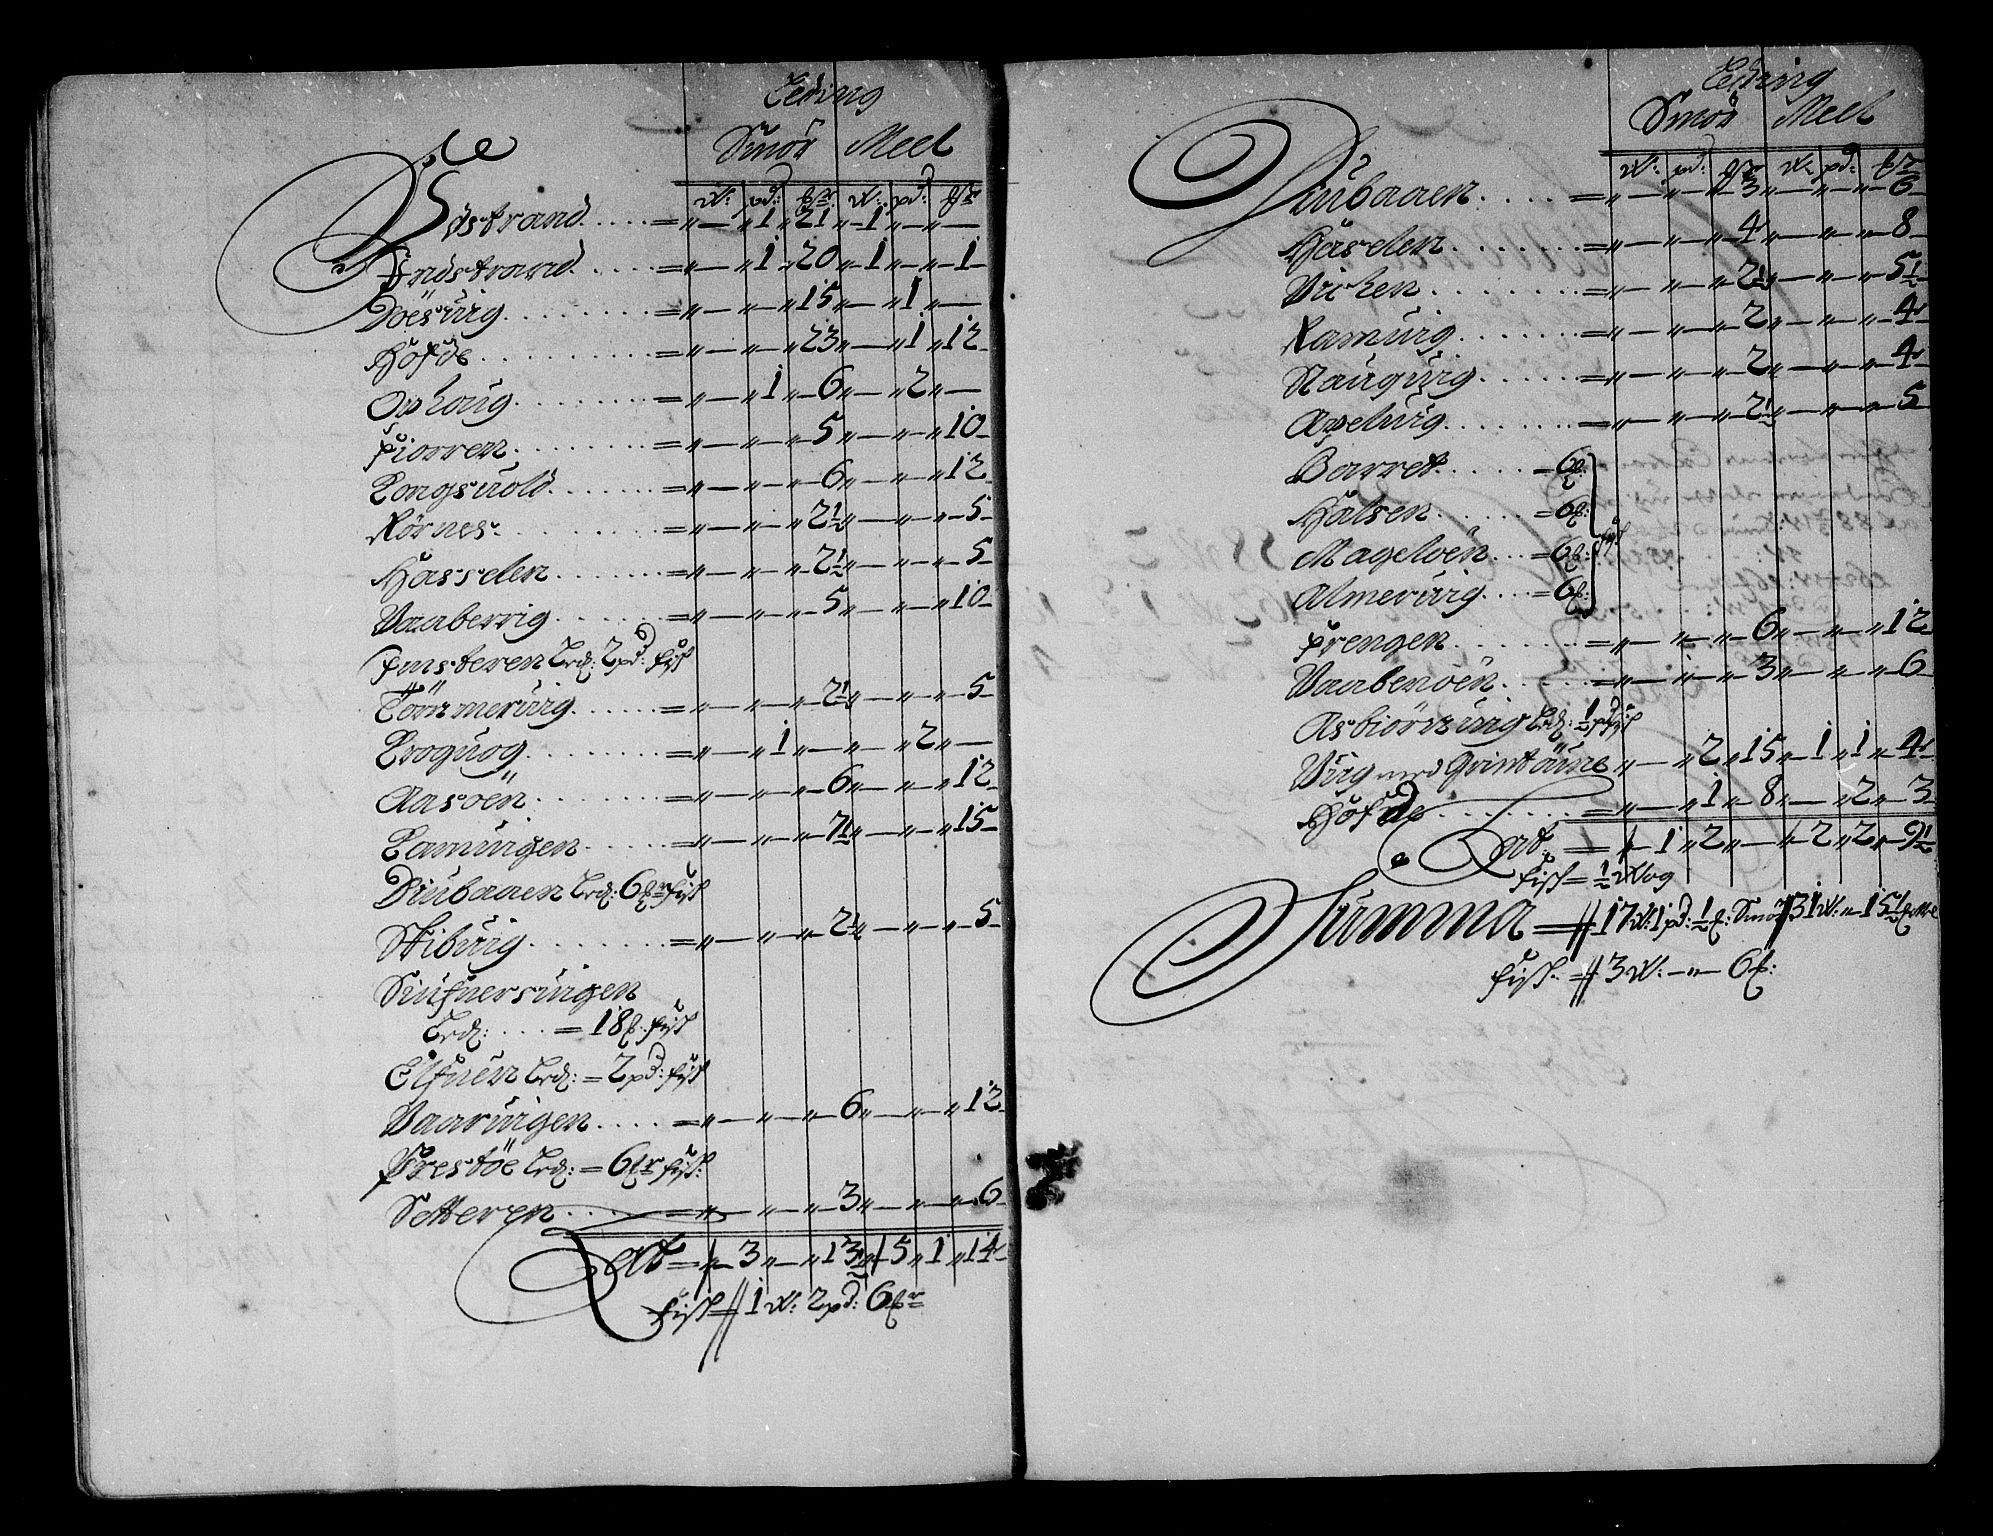 Leding
Smör Meel
W: pd: W: pd:
Ydstrand . . . . = „ — „ 1 „ 21 „ 1 „ — „ —
Indstrand . . . . = „ — „ 1 „ 20 „ 1 „ — „ 1
Döesvig . . . . = „ — „ — „ 15 „ — „ 1 „ —
Höfde . . . . = „ — „ — „ 23 „ — „ 1 „ 12
Ophoug . . . . = „ — „ 1 „ 6 „ — „ 2 „ —
Fiorren . . . . = „ — „ — „ 5 „ — „ — „ 10
Longsvold . . . . = „ — „ — „ 6 „ — „ — „ 12
Rörnes . . . . = „ — „ — „ 2½ „ — „ — „ 5
Hasselen . . . . = „ — „ — „ 2½ „ — „ — „ 5
Vaaberrig . . . . = „ — „ — „ 5 „ — „ — „ 10
Imsteren 2 pd: fisk
Tömmervig . . . . = „ — „ — „ 2½ „ — „ — „ 5
Krogvog . . . . = „ — „ 1 „ — „ — „ 2 „ —
Aasöen . . . . = „ — „ — „ 6 „ — „ — „ 12
Lamvigen . . . . = „ — „ — „ 7½ „ — „ — „ 15
Diubaaen 6 fisk
Stibvig . . . . = „ — „ — „ 2½ „ — „ — „ 5
Skiefnersvigen
. . . = 18 fisk
Elfuen = 2 pd: fisk
Vaarvigen . . . . = „ — „ — „ 6 „ — „ — „ 12
Prestöe = 6 fisk:
Setteren . . . . = „ — „ — „ 3 „ — „ — „ 6
Lat = 3 „ — „ 13½ 5 „ 1 „ 14
fisk 1 W: 2 pd: 6
Leding
Smör Meel
W: pd: W: pd:
Diubaaen . . . . = „ — „ — „ 3 „ — „ — „ 6
Hasselen . . . . = „ — „ — „ 4 „ — „ — „ 8
Vichen . . . . = „ — „ — „ 2½ „ — „ — „ 5½
Ramvig . . . . = „ — „ — „ 2 „ — „ — „ 4
Naugvig . . . . = „ — „ — „ 2 „ — „ — „ 4
Apelvig . . . . = „ — „ — „ 2½ „ — „ — „ 5
Borret . . . . = 6
Halsen . . . . = 6
Mageloen . . . = 6 fisk
Almervig . . . . = 6
Frengen . . . . = „ — „ — „ 6 „ — „ — „ 12
Vaabenöen . . . . = „ — „ — „ 3 „ — „ — „ 6
Asbiörnsvig ½ pd fisk
Viig med Qvintaune „ — „ 2 „ 15 „ 1 „ 1 „ 4
Höfde . . . . = „ — „ 1 „ 8 „ — „ 2 „ 3
Lat = 1 „ 2 „ — 2 „ 2 „ 9½
fisk = ½ Wog
Summa = 17 W: 1 pd: ½ : Smör 31 W: „ 15½
fisk = 3 W: — „ — 6